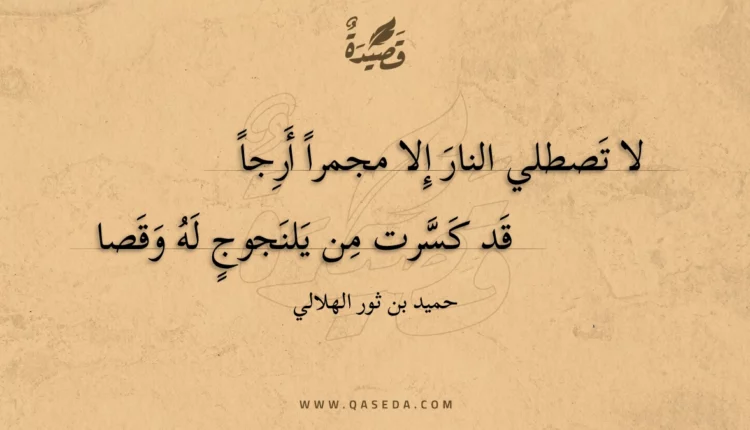 قَصِيْدَةٌ
لا تَصطلي النارَ إِلا مجمراً أَرِجاً
قَد كَسَّرت مِن يَلنَجوجٍ لَهُ وَقَصا
حميد بن ثور الهلالي
WWW.QASEDA.COM